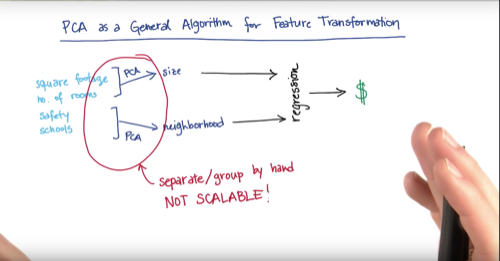 PCA as a General Algorithm for Feature Transformation
square footage
no. of rooms
PCA
size
safety
schools
PCA
neighborhood
regression
$
separate/group by hand
NOT SCALABLE!